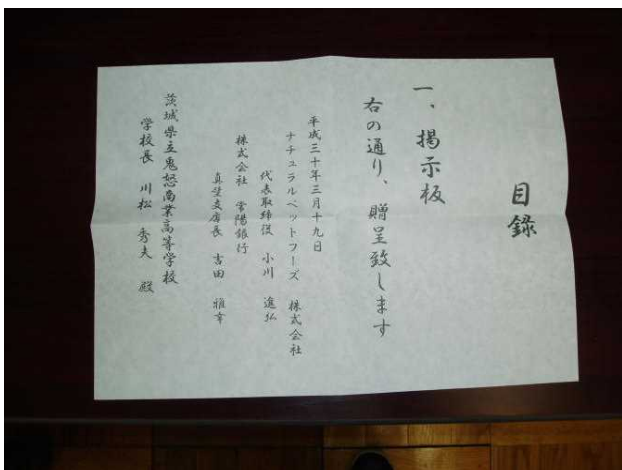 目録
一、掲示板
右の通り、贈呈致します
平成三十年三月十九日
ナチュラルペットフーズ 株式会社
代表取締役 小川 進弘
株式会社 常陽銀行
真壁支店長 吉田 雅幸
茨城県立鬼怒商業高等学校
学校長 川松 秀夫 殿